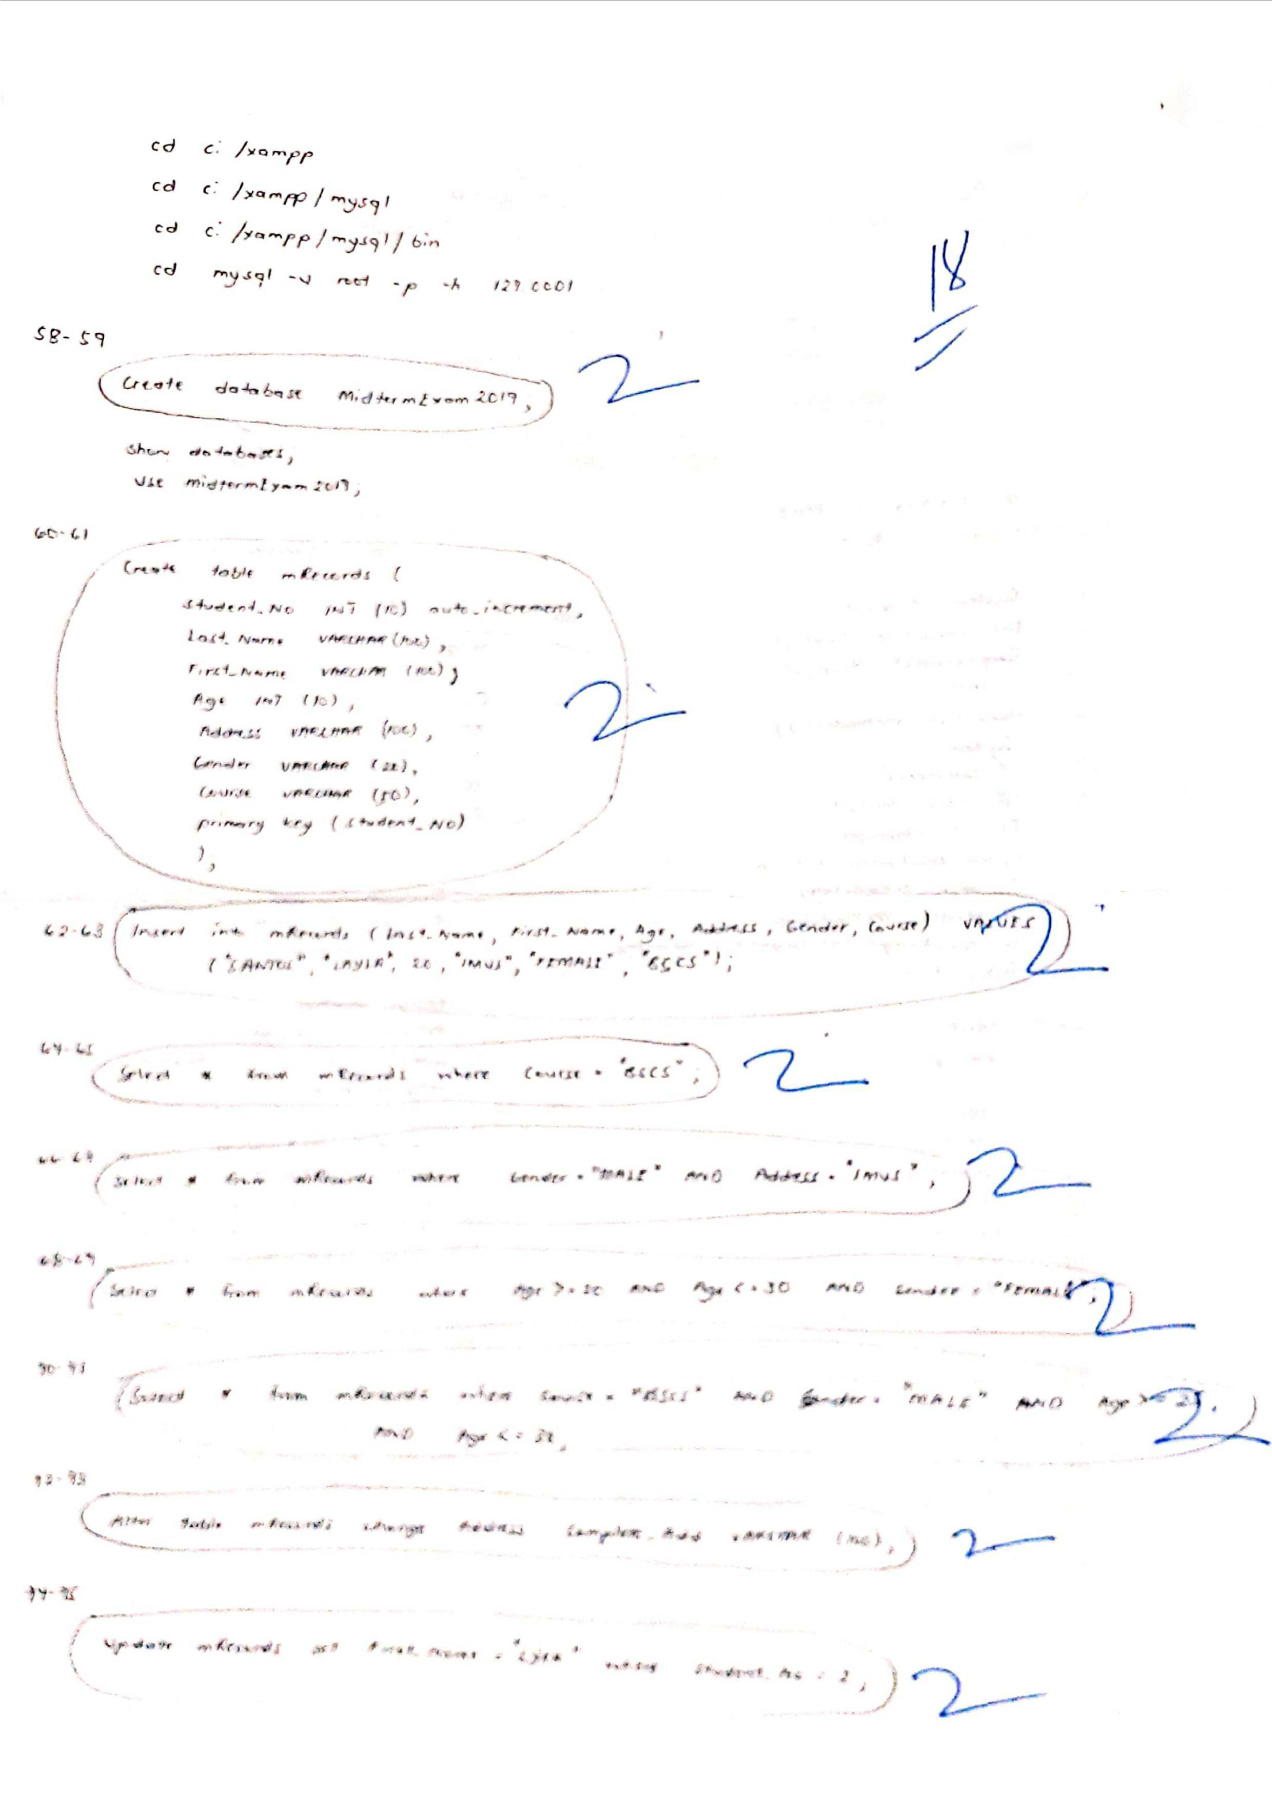 cd c: /xampp
cd c: /xampp/mysql
cd c: /xampp/mysql/bin
cd mysql -u root -p -h 127.0.0.1
18
58-59
Create database MidtermExam2019;
2
show databases;
use midtermExam2019;
60-61
Create table mRecords (
Student_No INT (10) auto_increment,
Last_Name VARCHAR (100),
First_Name VARCHAR (100),
Age INT (10),
2
Address VARCHAR (100),
Gender VARCHAR (20),
Course VARCHAR (50),
primary key (Student_No)
);
62-63 Insert into mRecords (Last_Name, First_Name, Age, Address, Gender, Course) VALUES
2
("SANTOS", "LAYLA", 20, "IMUS", "FEMALE", "BSCS");
64-65
Select * from mRecords where Course = "BSCS";
2
66-67
Select * from mRecords where Gender = "MALE" AND Address = "IMUS";
2
68-69
Select * from mRecords where Age >= 20 AND Age <= 30 AND Gender = "FEMALE";
2
70-71
Select * from mRecords where Course = "BSCS" AND Gender = "MALE" AND Age >=
2
AND Age <=
72-73
Alter table mRecords change Address Complete_Add VARCHAR (100);
2
74-75
Update mRecords set First_Name = where Student_No = 2;
2